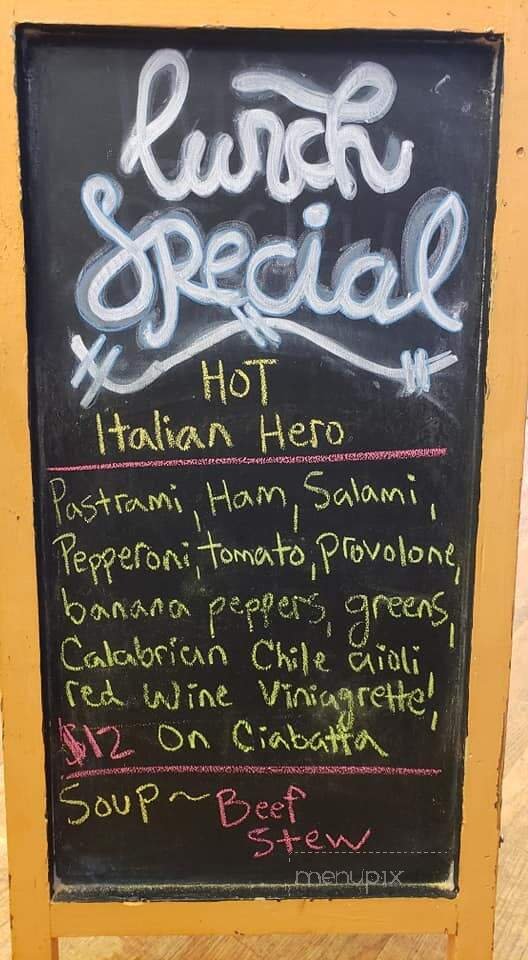 lunch
Special
HOT
Italian Hero
Pastrami, Ham, Salami,
Pepperoni, tomato, provolone,
banana peppers, greens,
Calabrian Chile aioli
red wine Viniagrette!,
$12 On Ciabatta
Soup ~ Beef
Stew
menupix